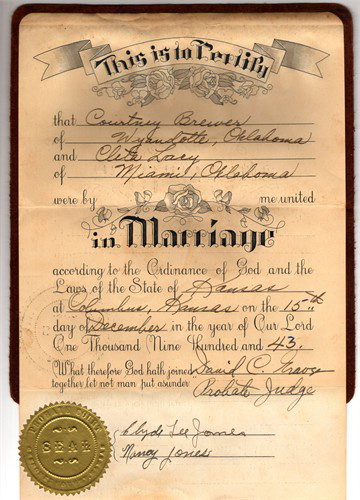 This is to Certify
that Courtney Brewer
of Wyandotte, Oklahoma
and Cleta Lacy
of Miami, Oklahoma
were by me united
in Marriage
according to the Ordinance of God and the
Laws of the State of Kansas
at Columbus, Kansas on the 15th
day of December in the year of Our Lord
One Thousand Nine Hundred and 43.
What therefore God hath joined David C.
together let not man put asunder Probate Judge
SEAL
Clyde Lee Jones
Nancy Jones